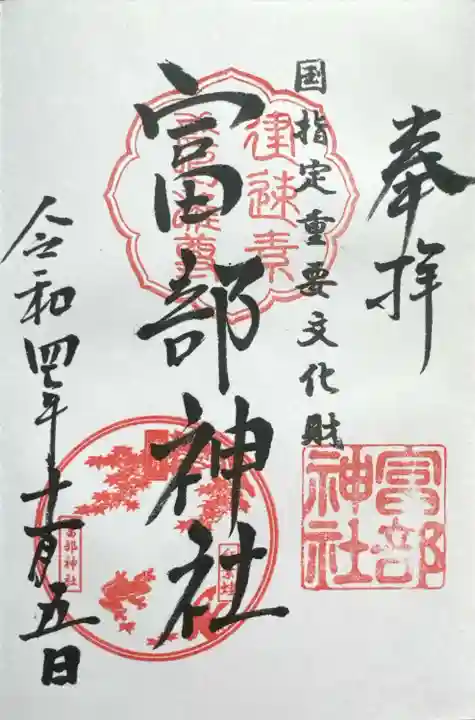 奉拝
国指定重要文化財
富部神社
令和四年十一月五日
建速素
富部
神社
富部神社